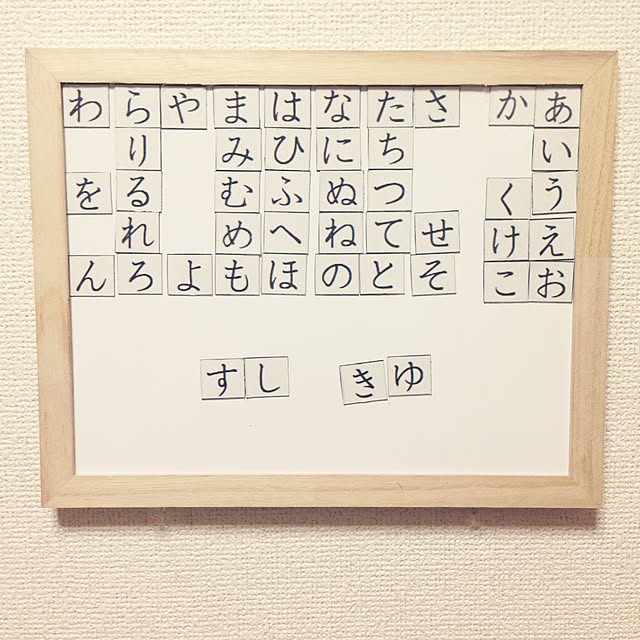 わらやまはなたさかあ
りみひにちい
をるむふぬつくう
れめへねてせけえ
んろよもほのとそこお
すし きゆ